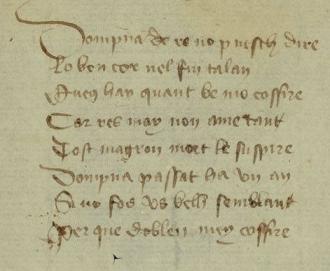 Dompna de re no puesch dire
Lo bon cor nel fin talan
Queus hay quant be mo cossire
Car res may non ame tant
Tost magron mort le suspire
Dompna passat ha un an
Si no fos us bells semblant
Per que doblen mey cossire